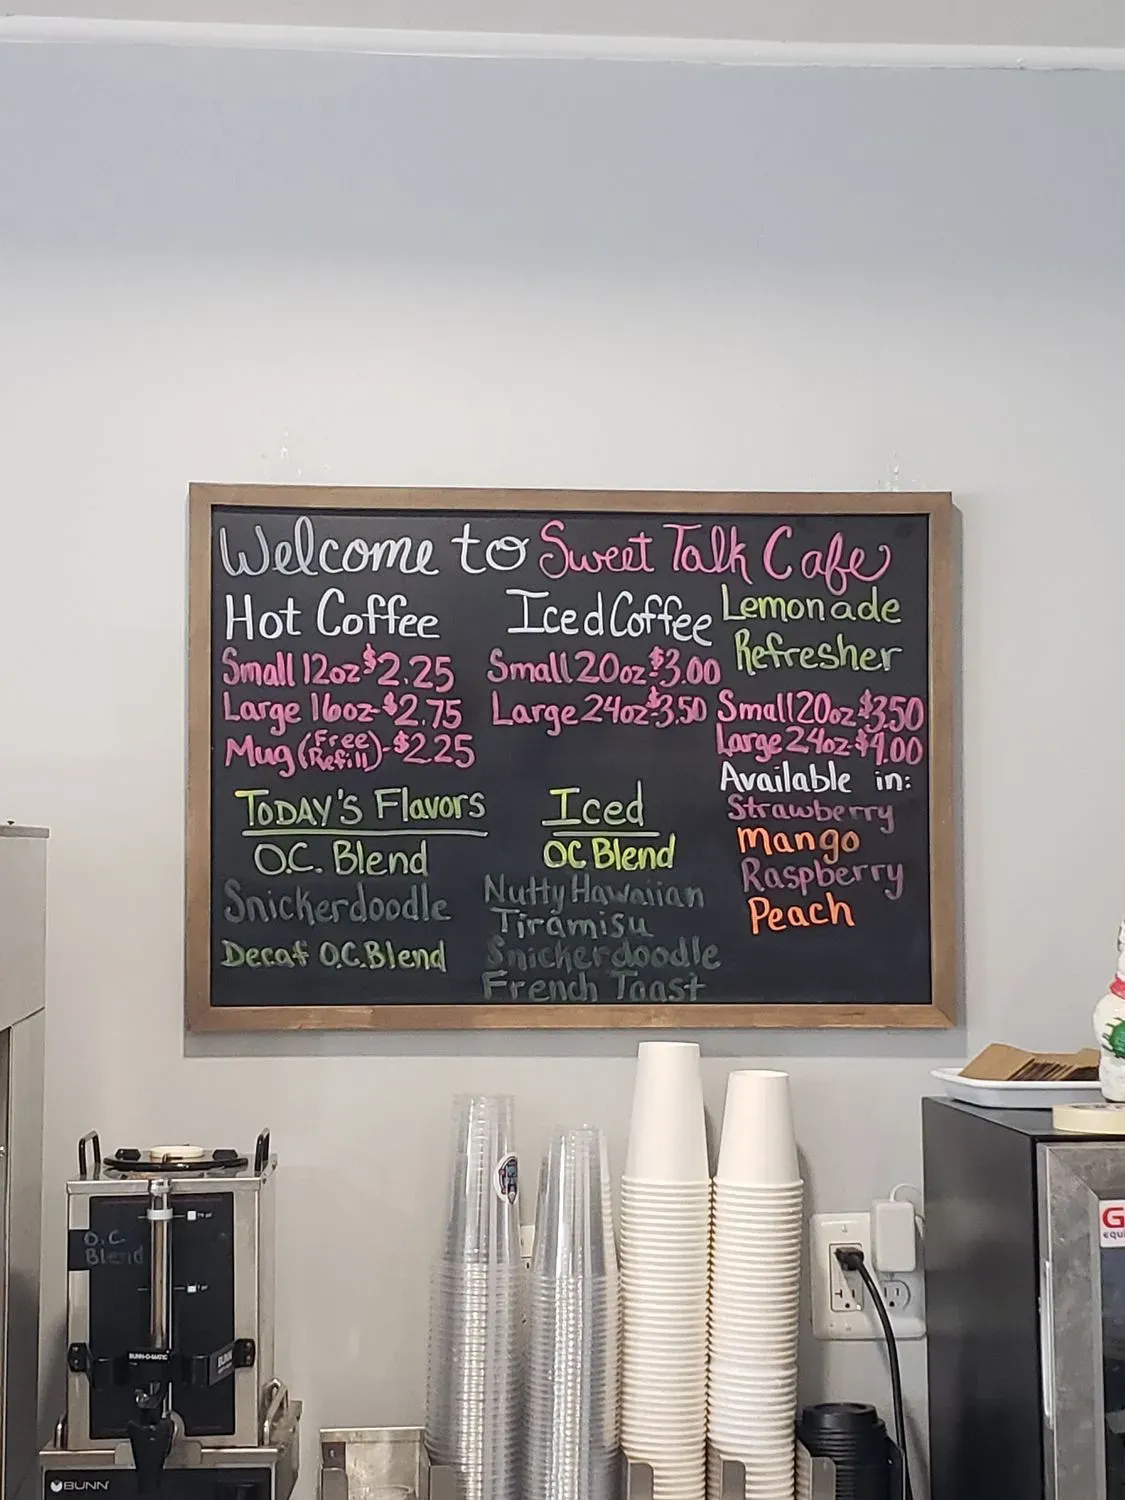 Welcome to Sweet Talk Cafe
Hot Coffee
Small 12oz $2.25
Large 16oz-$2.75
Mug (Free Refill)-$2.25
Iced Coffee
Small 20oz-$3.00
Large 24oz-$3.50
Lemonade
Refresher
Small 20oz-$3.50
Large 24oz-$4.00
Available in:
Strawberry
Mango
Raspberry
Peach
TODAY'S Flavors
O.C. Blend
Snickerdoodle
Decaf O.C. Blend
Iced
OC Blend
Nutty Hawaiian
Tiramisu
Snickerdoodle
French Toast
O.C.
Blend
BUNN-O-MATIC
BUNN
G
EQUI